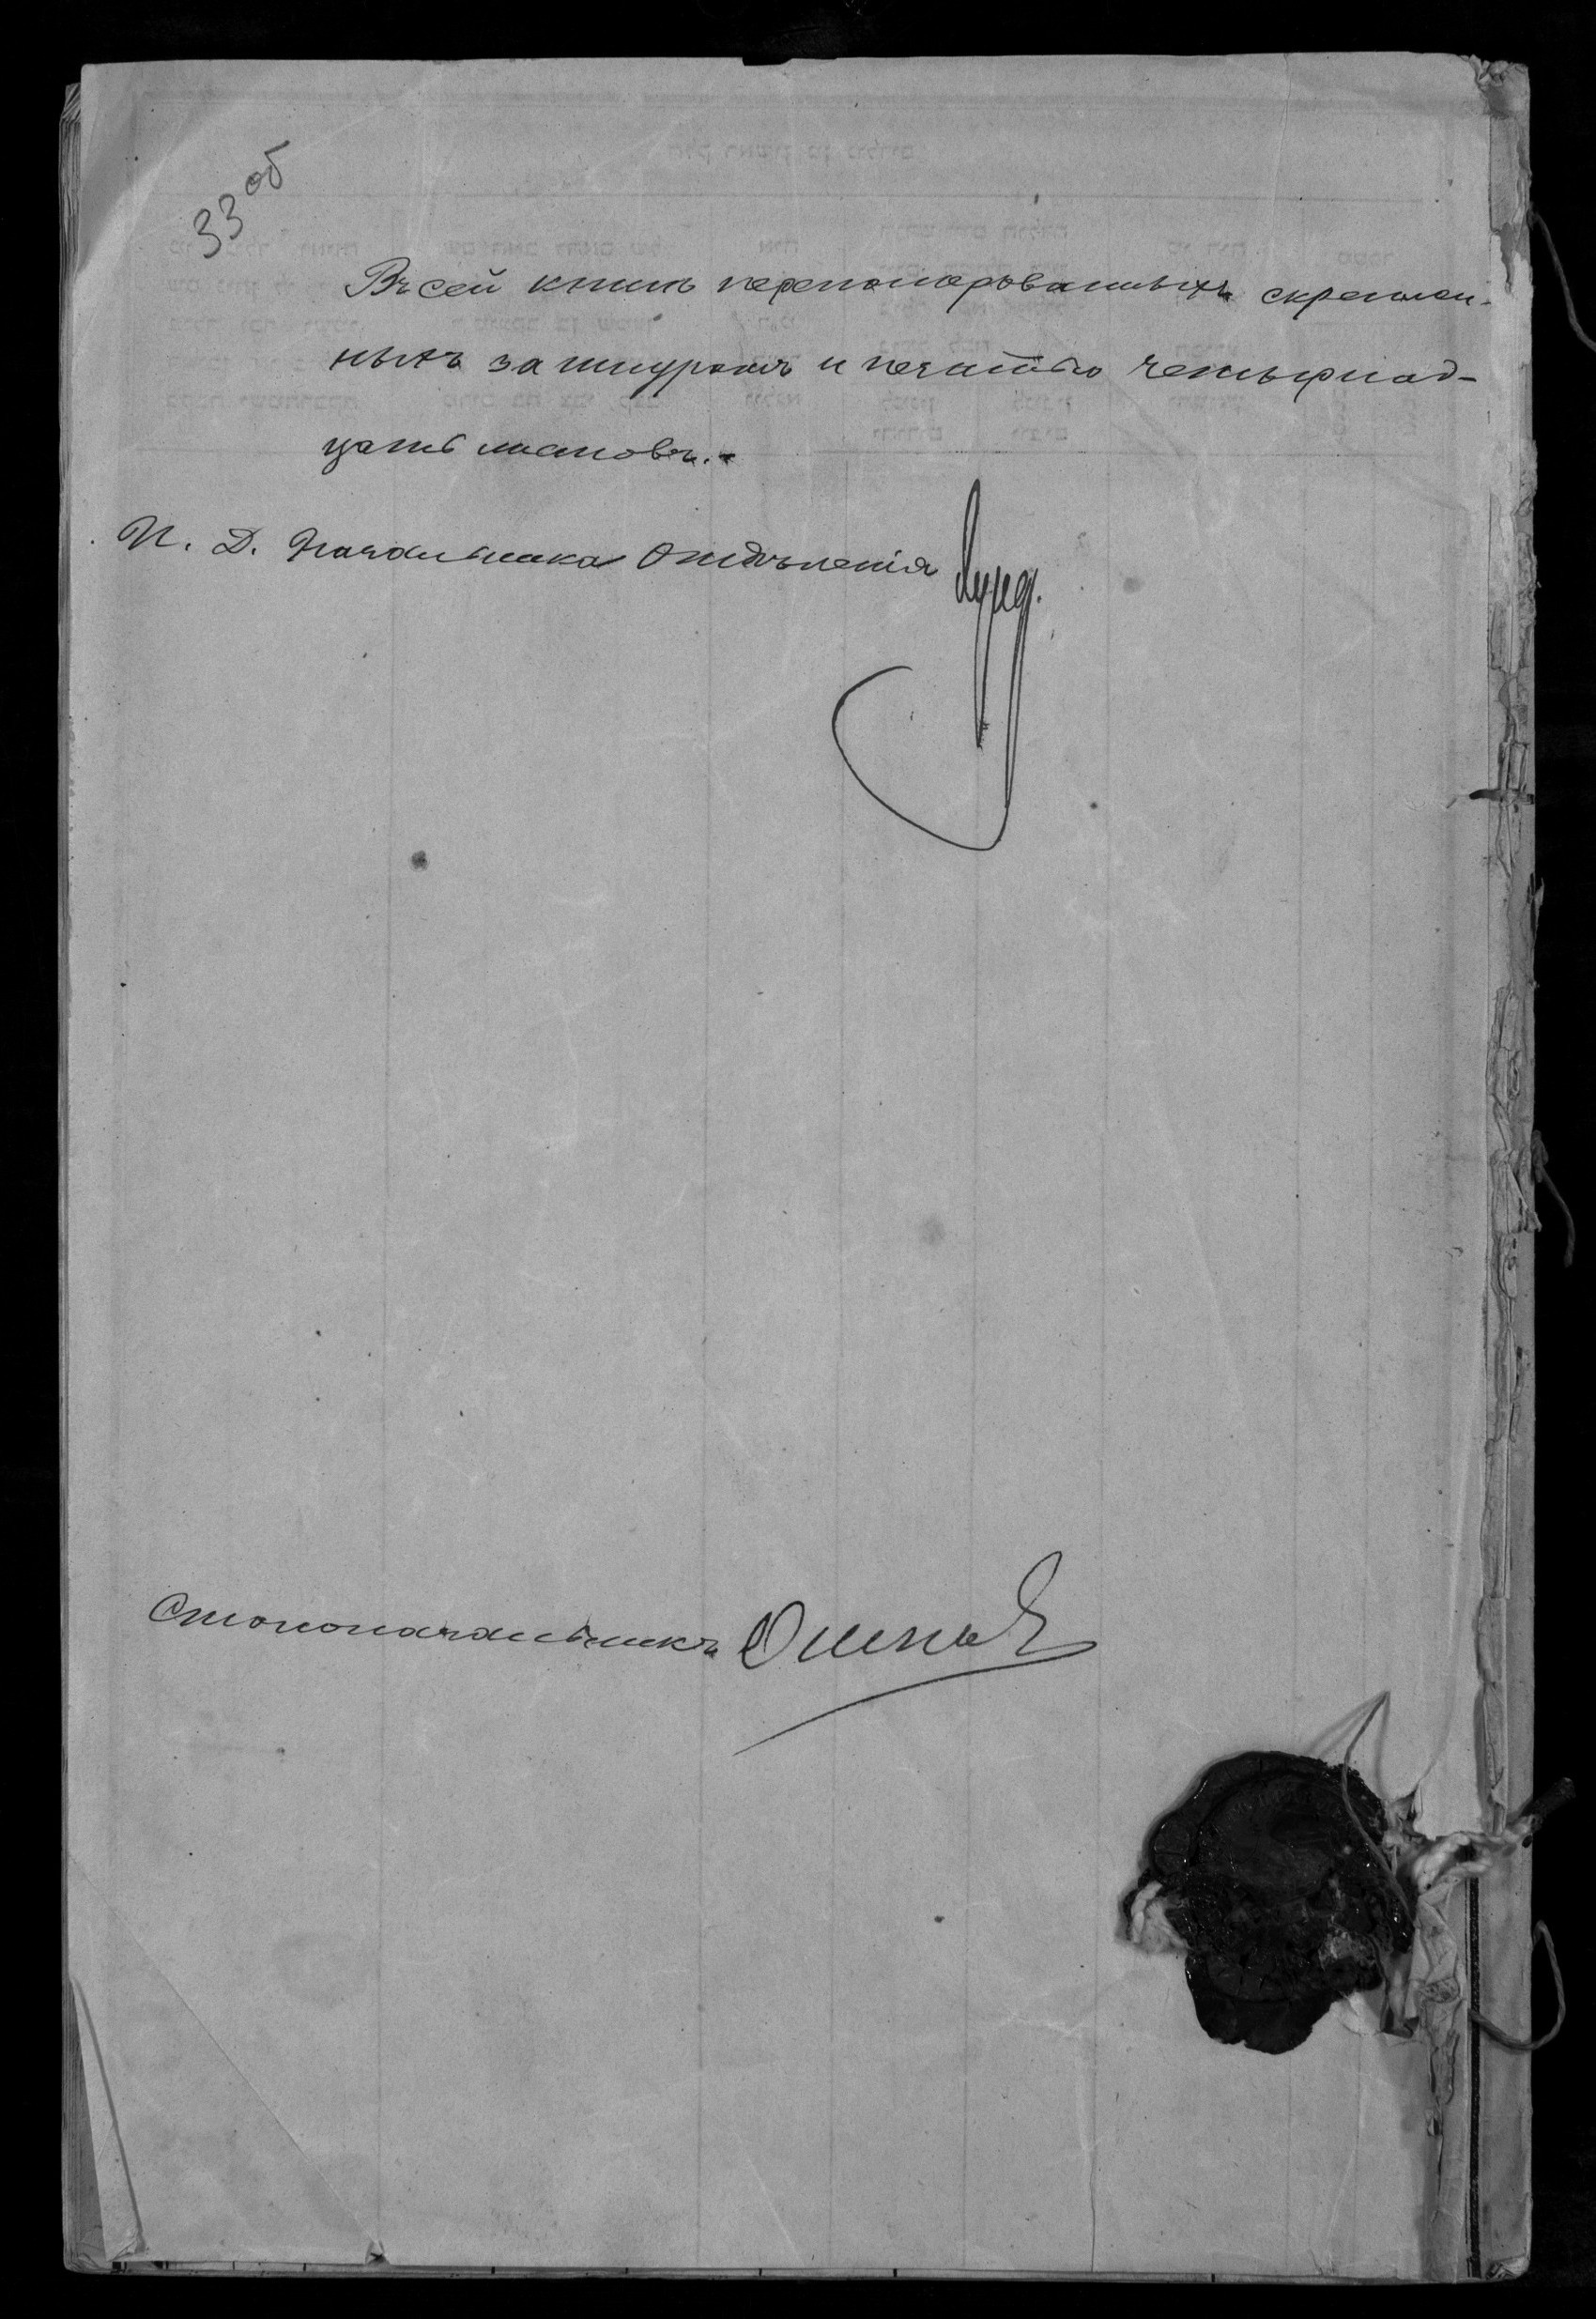 33 об
Въ сей книгѣ переномерованныхъ скреплен-
ныхъ за шнуромъ и печатью четырнад-
цать листовъ.
И. Д. Начальника Отдѣленія
Столоначальникъ